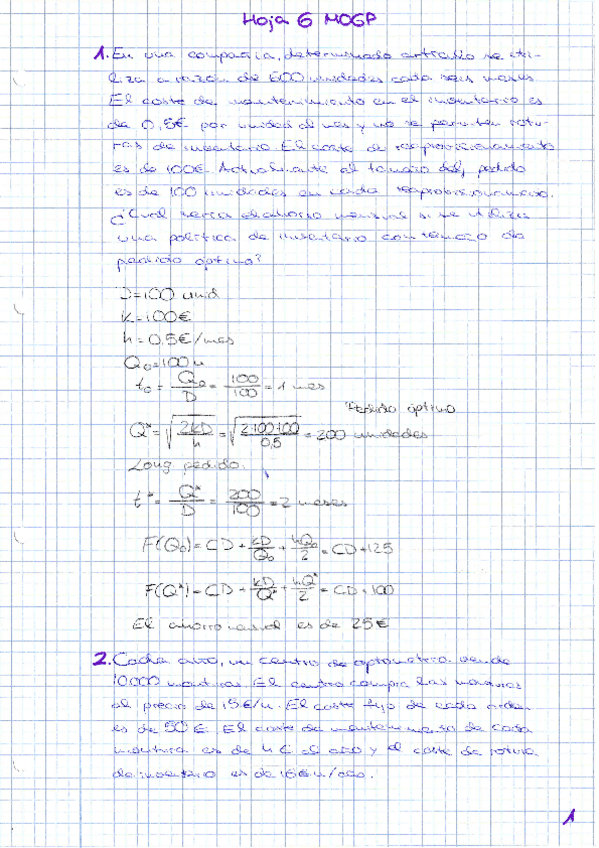 Hoja 6 MOGP
1. En una compañía, determinado artículo se uti-
liza a razón de 600 unidades cada seis meses.
El coste de mantenimiento en el inventario es
de 0,5€ por unidad al mes y no se permiten rotu-
ras de inventario. El coste de reaprovisionamiento
es de 100€. Actualmente el tamaño del pedido
es de 100 unidades en cada reaprovisionamiento.
¿Cuál sería el ahorro mensual si se utiliza
una política de inventario con tamaño de
pedido óptimo?
D=100 und
K=100€
h=0,5€/mes
Q₀=100 u
t₀ = Q₀/D = 100/100 = 1 mes
Pedido óptimo
Q* = √(2KD/h) = √(2·100·100/0,5) = 200 unidades
Long pedido:
t* = Q*/D = 200/100 = 2 meses
F(Q₀) = CD + KD/Q₀ + hQ₀/2 = CD+125
F(Q*) = CD + KD/Q* + hQ*/2 = CD+100
El ahorro mensual es de 25€
2. Cada año, un centro de optometría vende
10000 monturas. El centro compra las monturas
al precio de 15€/u. El coste fijo de cada orden
es de 50€. El coste de mantenimiento de cada
montura es de 4€ al año y el coste de rotura
de inventario es de 16€ u/año.
1